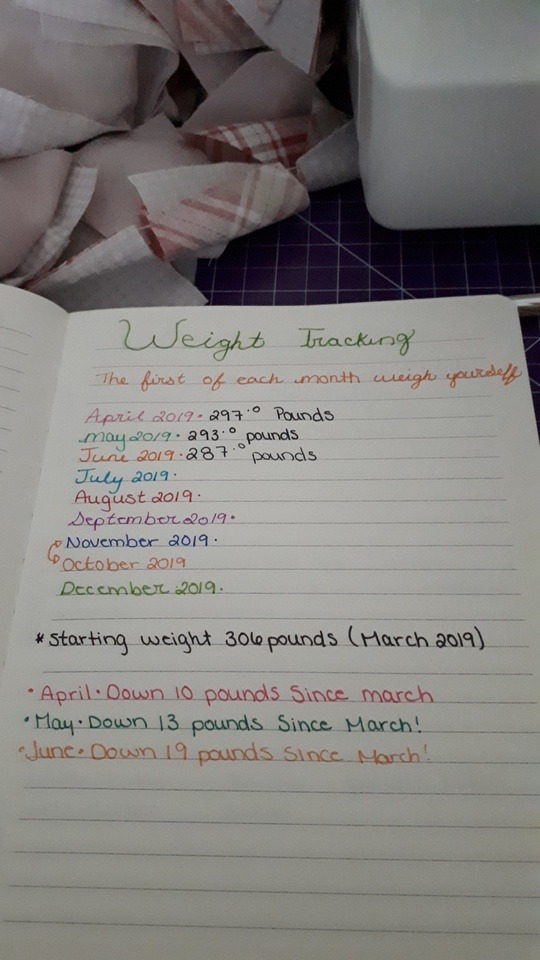 Weight Tracking
The first of each month weigh yourself
April 2019. 297.0 Pounds
May 2019. 293.0 pounds
June 2019. 287.0 pounds
July 2019.
August 2019.
September 2019.
November 2019.
October 2019
December 2019.
* Starting weight 306 pounds (March 2019)
• April • Down 10 pounds Since march
• May • Down 13 pounds Since March!
• June • Down 19 pounds Since March!